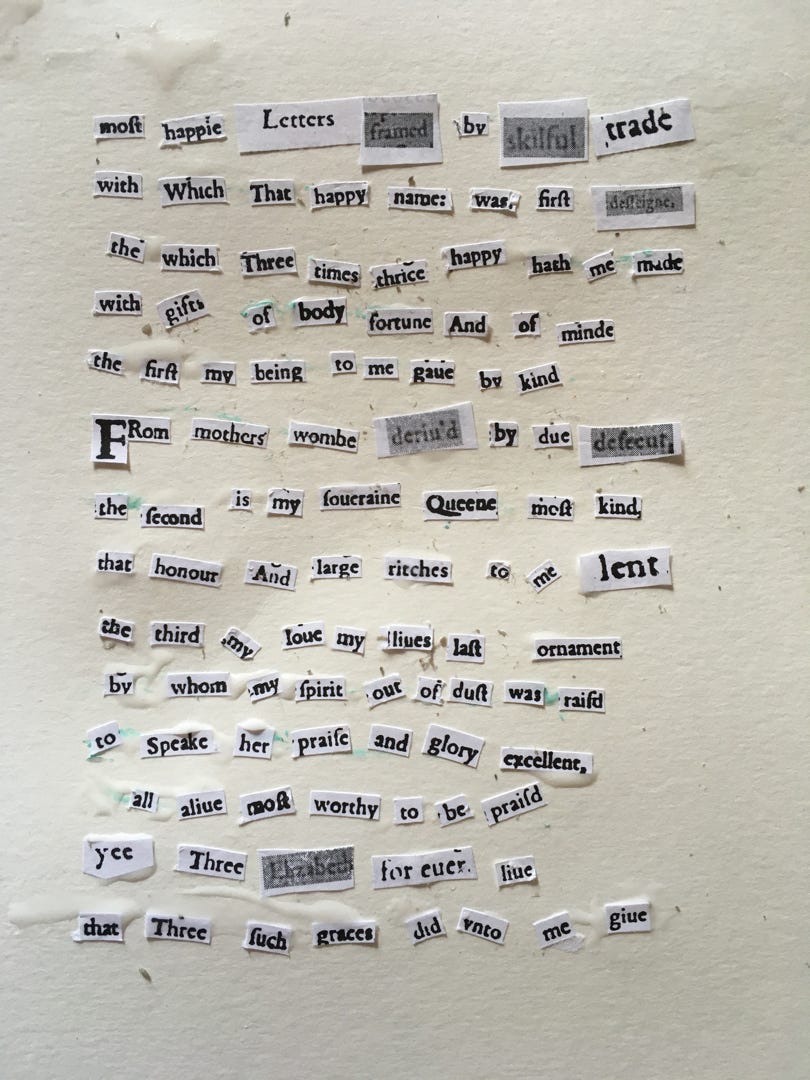 moſt happie Letters framed by skilful trade
with Which That happy name: was, firſt deſſeigne,
the which Three times thrice happy hath me made
with gifts of body fortune And of minde
the firſt my being to me gaue by kind
FRom mothers wombe deriu'd by due deſcent,
the ſecond is my ſoueraine Queene moſt kind,
that honour And large ritches to me lent
the third my loue my liues laſt ornament
by whom my ſpirit out of duſt was raiſd
to Speake her praiſe and glory excellent,
all aliue moſt worthy to be praiſd
yee Three Elizabeth for euer. liue
that Three ſuch graces did vnto me giue